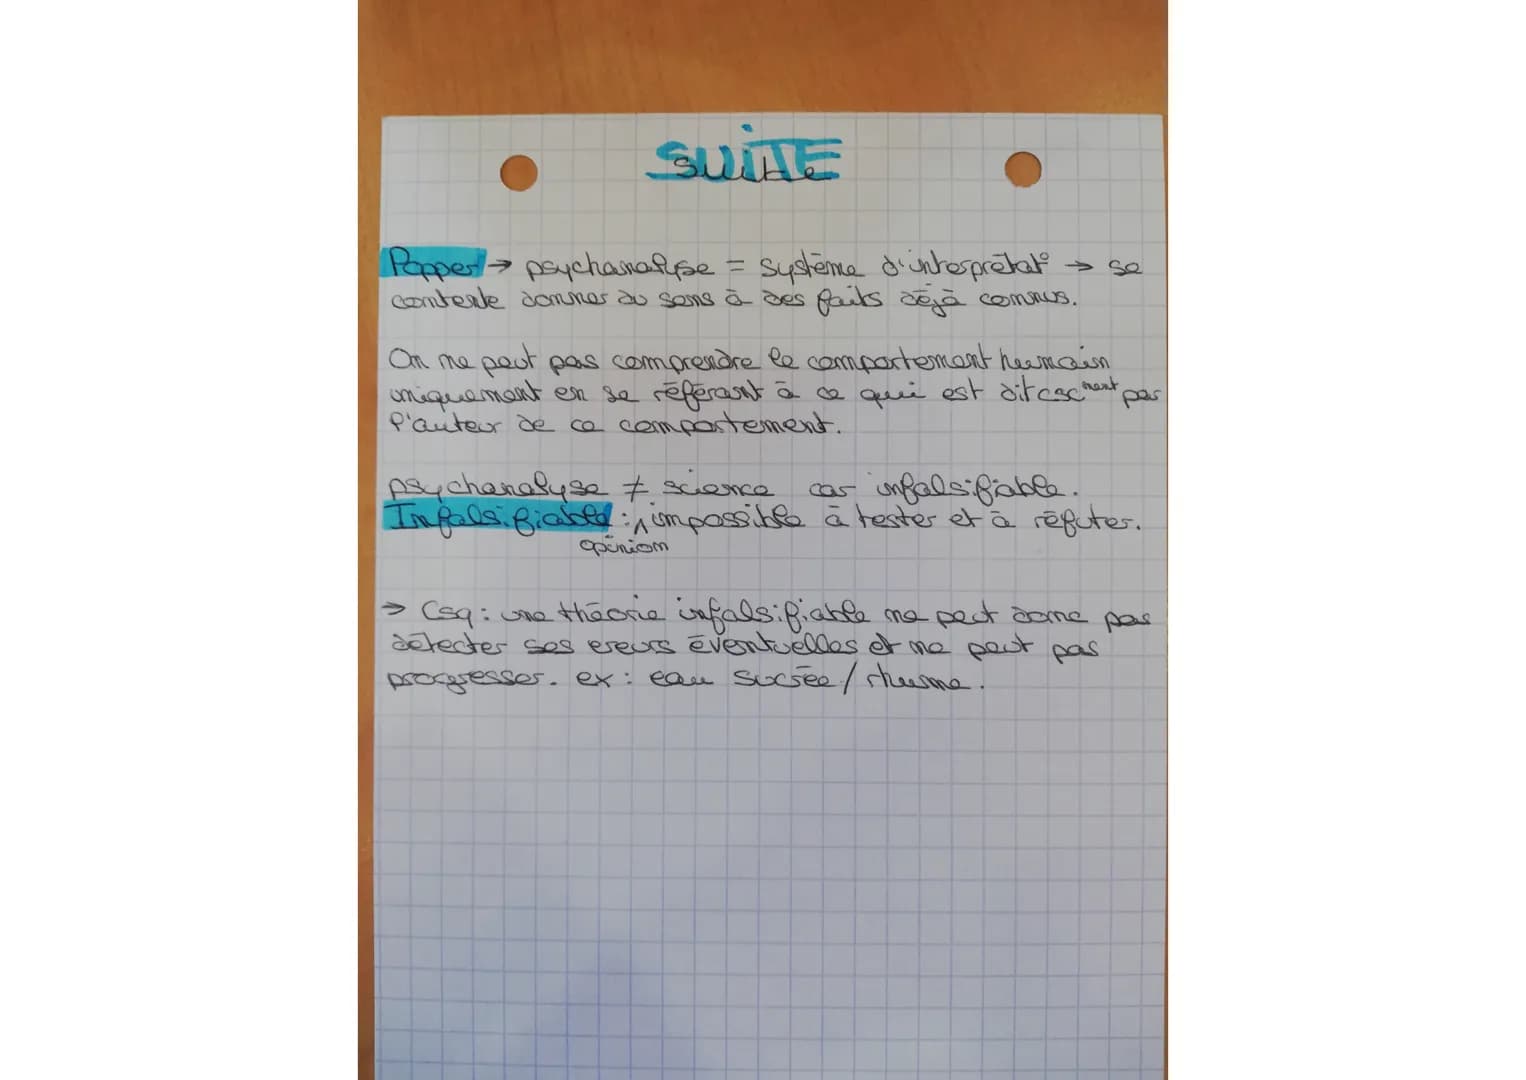 SUITE
Popper → psychanalyse = système d'interprétat° → se
contente donner du sens à des faits déjà connus.
On ne peut pas comprendre le comportement humain
uniquement en se référant à ce qui est dit cscment par
l'auteur de ce comportement.
psychanalyse ≠ science car infalsifiable.
Infalsifiable : ∧ impossible à tester et à réfuter.
opinion
→ Csq : une théorie infalsifiable ne peut donc pas
détecter ses ereurs éventuelles et ne peut pas
progresser. ex : eau sucrée / rhume.